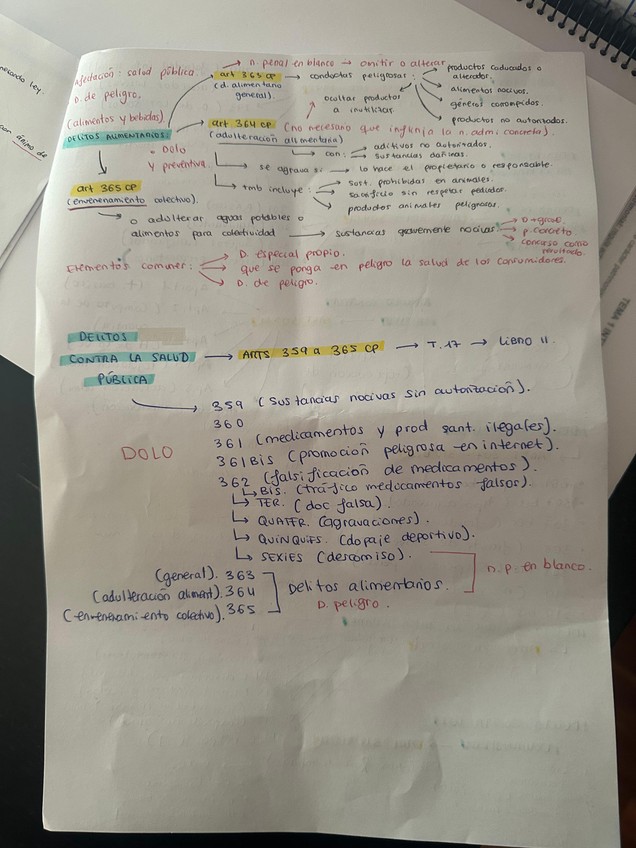 nerando ley.
con ánimo de
Afectación: salud pública.
D. de peligro.
(alimentos y bebidas).
DELITOS ALIMENTARIOS:
→ n. penal en blanco → omitir o alterar
art 365 CP → conductas peligrosas:
(d. alimentario
general).
ocultar productos
a inutilizar.
productos caducados o
alterados.
alimentos nocivos.
géneros corrompidos.
productos no autorizados.
art 364 CP (no necesario que infrinja la n. admi concreta).
(adulteración alimentaria)
→ con: → aditivos no autorizados.
→ sustancias dañinas.
• DOLO
y preventiva.
→ se agrava si: → lo hace el propietario o responsable.
→ tmb incluye: → sust. prohibidas en animales.
→ sacrificio sin respetar periodos.
→ productos animales peligrosos.
art 365 CP
(envenenamiento colectivo).
→ o adulterar aguas potables o
alimentos para colectividad → sustancias gravemente nocivas.
→ D + grave
→ p. concreto
→ concurso como
resultado.
Elementos comunes: → D. especial propio.
→ que se ponga en peligro la salud de los consumidores.
→ D. de peligro.
DELITOS
CONTRA LA SALUD → ARTS 359 a 365 CP → T.17 → LIBRO II.
PÚBLICA
→ 359 (sustancias nocivas sin autorización).
360
361 (medicamentos y prod sanit. ilegales).
DOLO
361 Bis (promoción peligrosa en internet).
362 (falsificación de medicamentos).
↳ BIS. (tráfico medicamentos falsos).
↳ TER. (doc falsa).
↳ QUATER. (agravaciones).
↳ QUINQUIES. (dopaje deportivo).
↳ SEXIES (descomiso).
(general). 363
(adulteración aliment). 364
(envenenamiento colectivo). 365
Delitos alimentarios.
D. peligro.
n. p. en blanco.
TEMA 1 INT